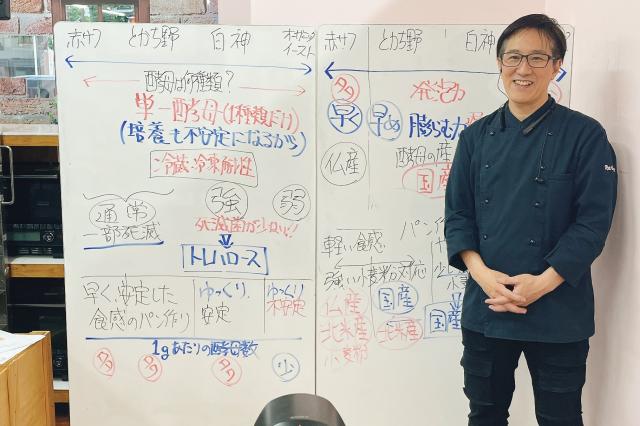 赤サフ とかち野 白神 オーガニックイースト
酵母は何種類？
単一酵母(1種類だけ)
(培養も不安定になるから)
冷蔵・冷凍耐性
通常
一部死滅
強
弱
死滅菌が少ない!!
トレハロース
早く、安定した
食感のパン作り
ゆっくり、
安定
ゆっくり
不安定
1gあたりの酵母数
多 多 多 少
赤サフ とかち野 白神
多
発酵力
早く 早め 膨らむ力
仏産
酵母の産
国産
軽い食感
パン作
強い小麦粉の対応
仏産
北米産
小麦粉
国産
北米産
国産